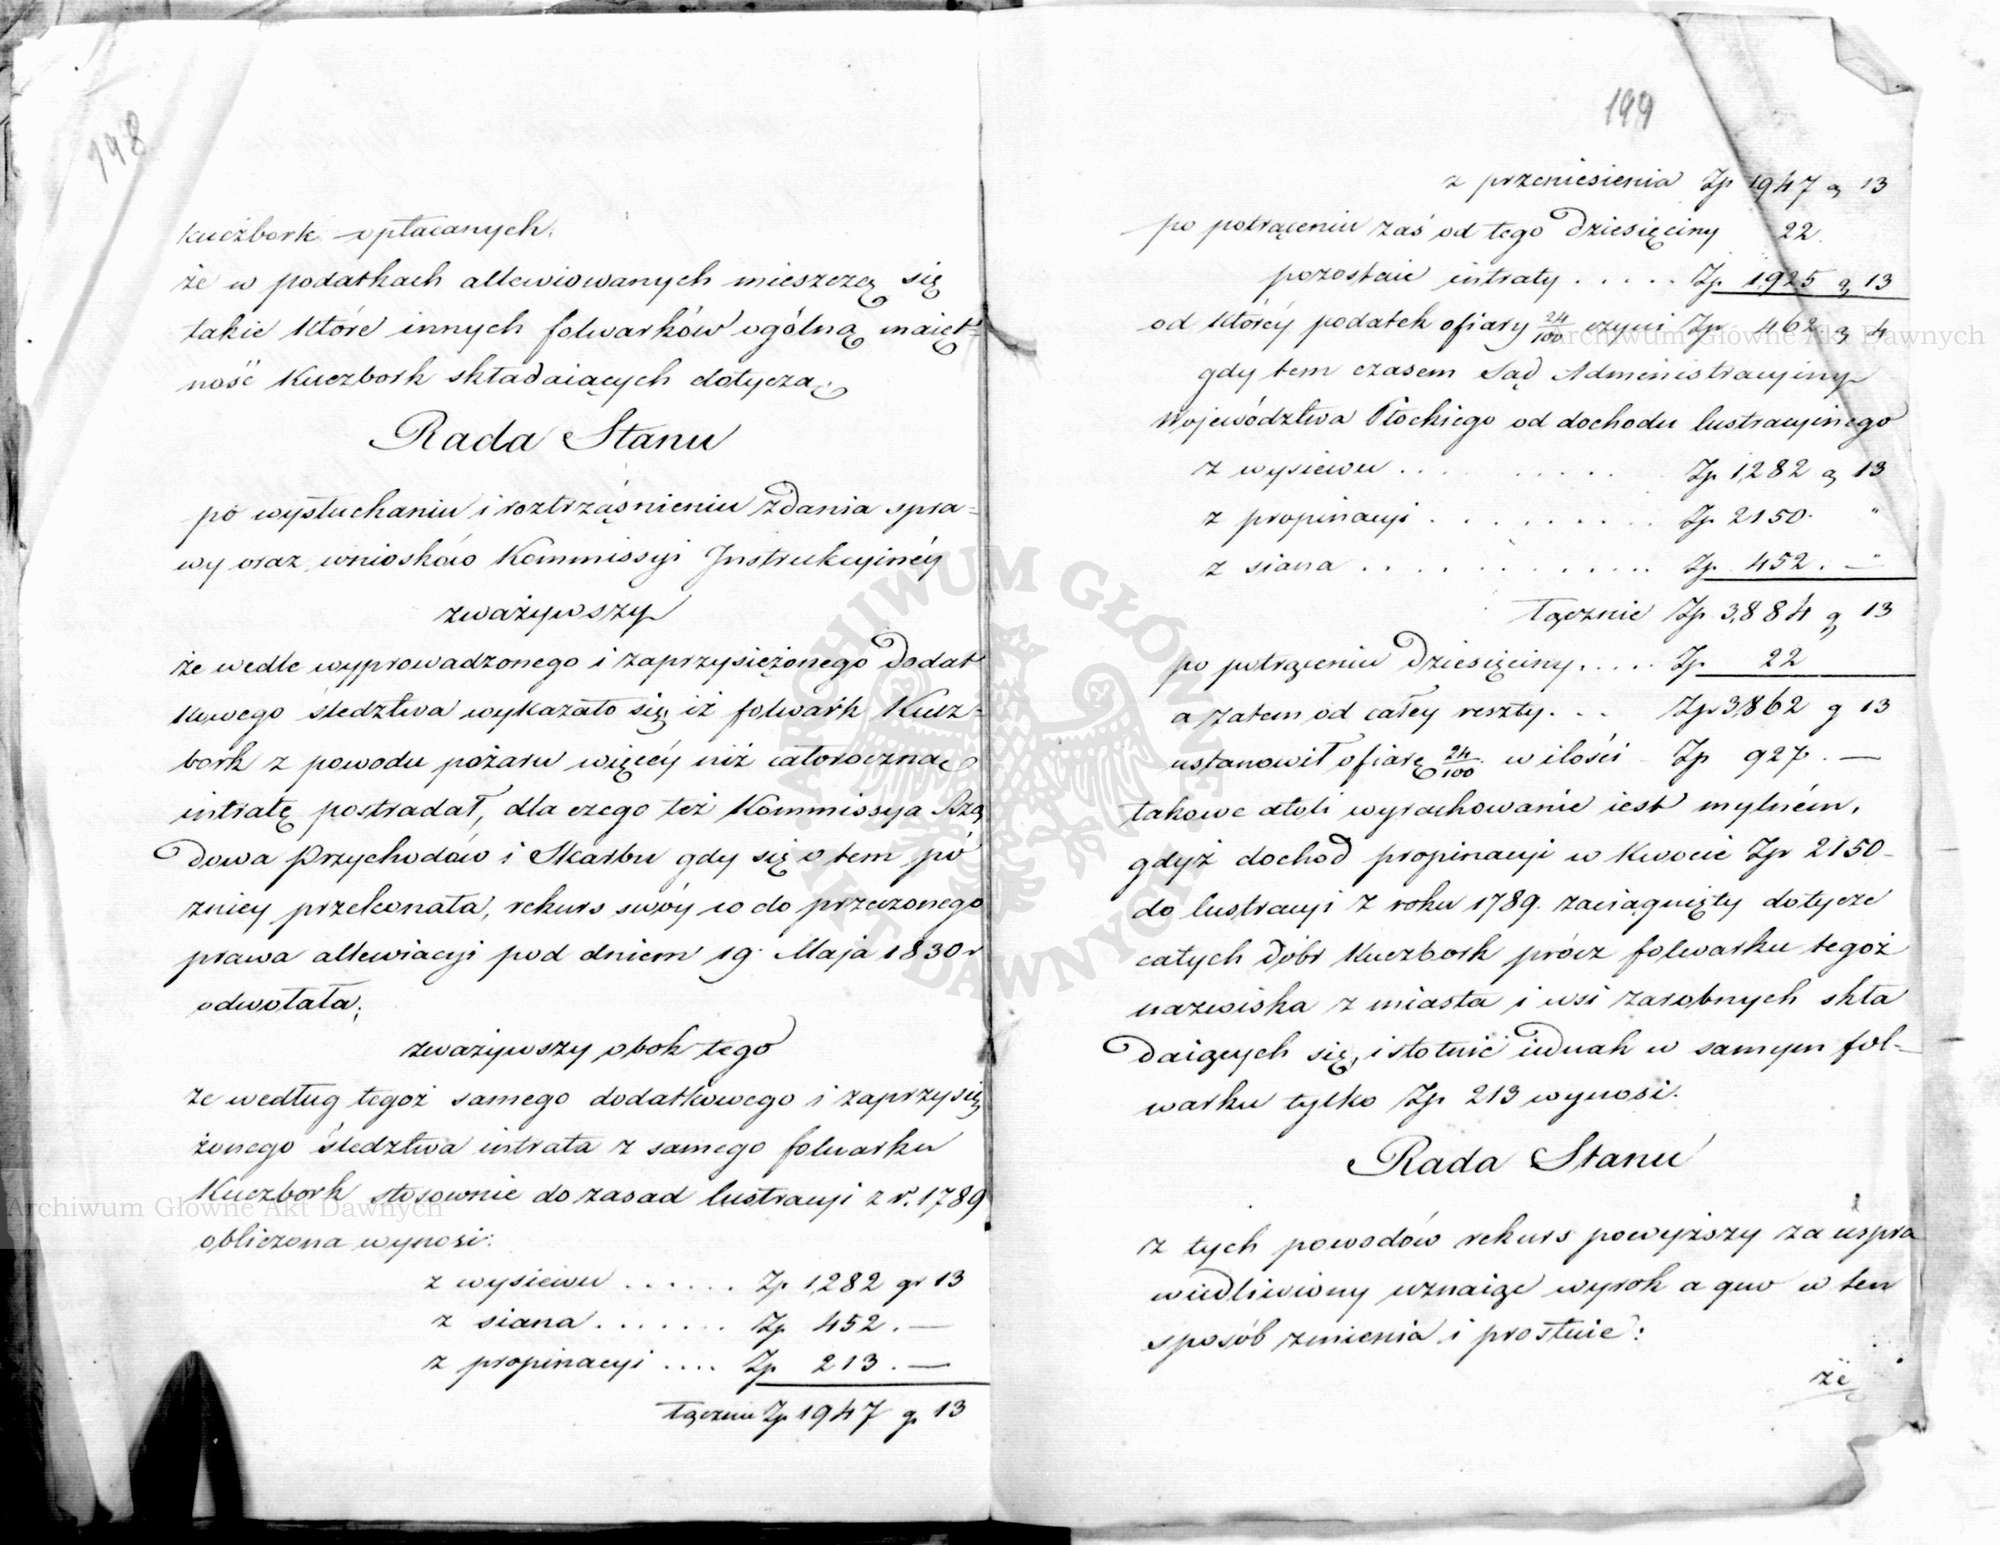 198
Kuczbork opłacanych.
że w podatkach allewiowanych mieszczą się
takie które innych folwarków ogólną maięt-
ność Kuczbork składaiących dotyczą;
Rada Stanu
po wysłuchaniu i roztrząśnieniu zdania spra-
wy oraz wniosków Kommissyi Instrukcyinéy
zważywszy
że wedle wyprowadzonego i zaprzysiężonego dodat
kowego śledztwa wykazało się iż folwark Kucz-
bork z powodu pożaru więcéy niż całoroczną
intratę postradał, dla czego też Kommissya Rzą
dowa Przychodów i Skarbu gdy się o tem pó
zniey przekonała, rekurs swóy co do przeczonego
prawa allewiacyi pod dniem 19 Maja 1830 r
odwołała;
zważywszy obok tego
że według tegoż samego dodatkowego i zaprzysię
żonego śledztwa intrata z samego folwarku
Kuczbork stosownie do zasad lustracyi z r. 1789
obliczona wynosi:
z wysiewu ...... Zp 1282 gr 13
z siana ....... Zp 452. —
z propinacyi .... Zp 213. —
łącznie Zp 1947 g 13
199
z przeniesienia Zp 1947 g 13
po potrąceniu zaś od tego dziesięciny 22.
pozostaie intraty ..... Zp 1,925 g 13
od któréy podatek ofiary 24/100 czyni Zp 462 g 4
gdy tem czasem Sąd Administracyiny
Województwa Płockiego od dochodu lustracyinego
z wysiewu ......... Zp 1,282 g 13
z propinacyi ......... Zp 2150. "
z siana ............ Zp 452. —
łącznie Zp 3,884 g 13
po potrąceniu dziesięciny ..... Zp 22
a zatem od całey reszty ... Zp 3,862 g 13
ustanowił ofiarę 24/100 w ilości Zp 927. —
takowe atoli wyrachowanie iest mylném,
gdyż dochod propinacyi w kwocie Zp 2150
do lustracyi z roku 1789. zaciągnięty dotycze
całych dóbr Kuczbork prócz folwarku tegoż
nazwiska z miasta i wsi zarobnych skła
daiących się, istotnie iednak w samym fol-
warku tylko Zp 213 wynosi.
Rada Stanu
z tych powodów rekurs powyższy za uspra
wiedliwiony uznaiąc wyrok a quo w ten
sposób zmienia i prostuie:
że
Archiwum Główne Akt Dawnych
Archiwum Główne Akt Dawnych
ARCHIWUM GŁÓWNE AKT DAWNYCH